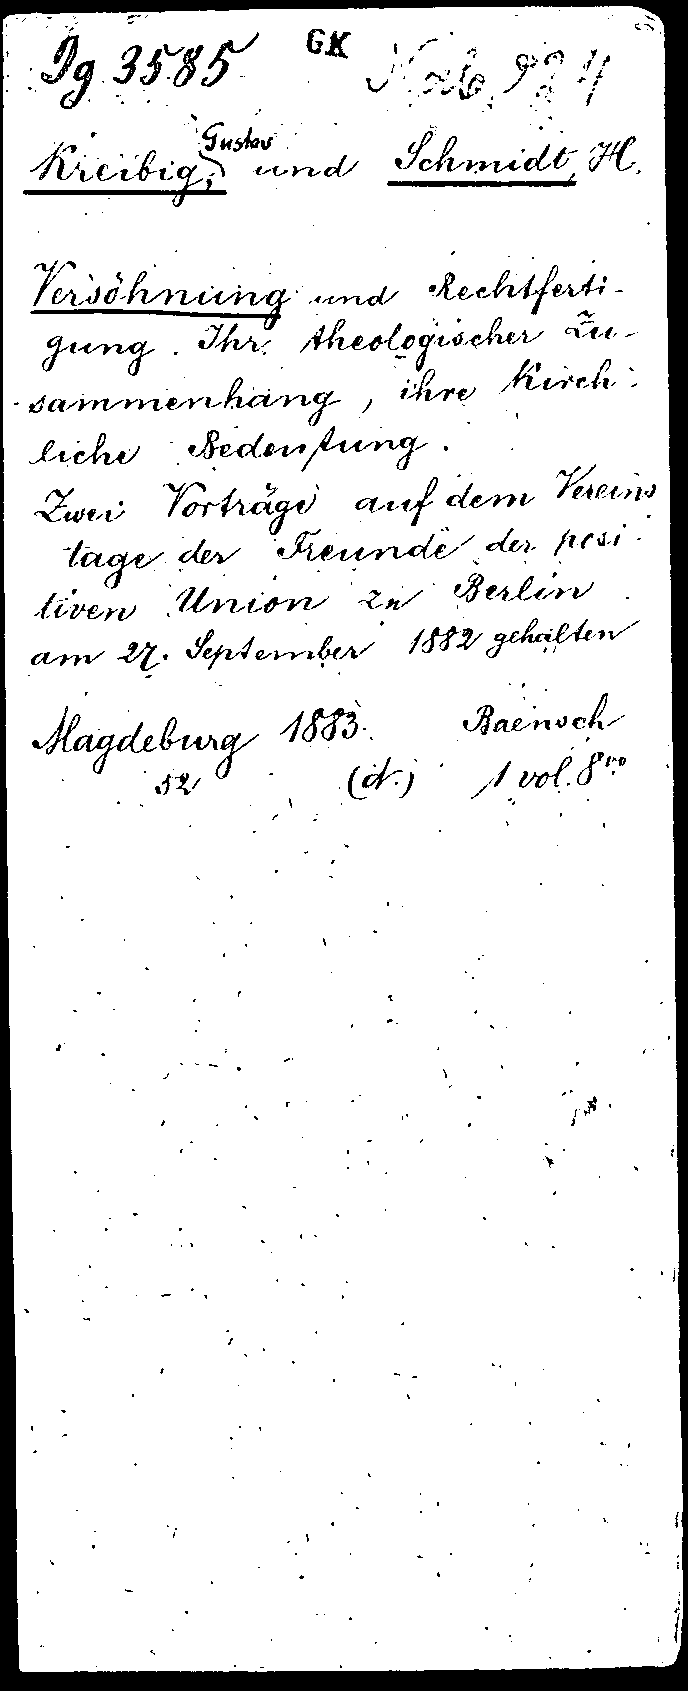 Dg 3585 GK
Kreibig, Gustav und Schmidt, H.
Versöhnung und Rechtferti-
gung. Ihr theologischer Zu-
sammenhang, ihre Kirch-
liche Bedeutung.
Zwei Vorträge auf dem Vereins
tage der Freunde der posi-
tiven Union zu Berlin
am 27. September 1882 gehalten
Magdeburg 1883. Baensch
52 (d.) 1 vol. 8vo